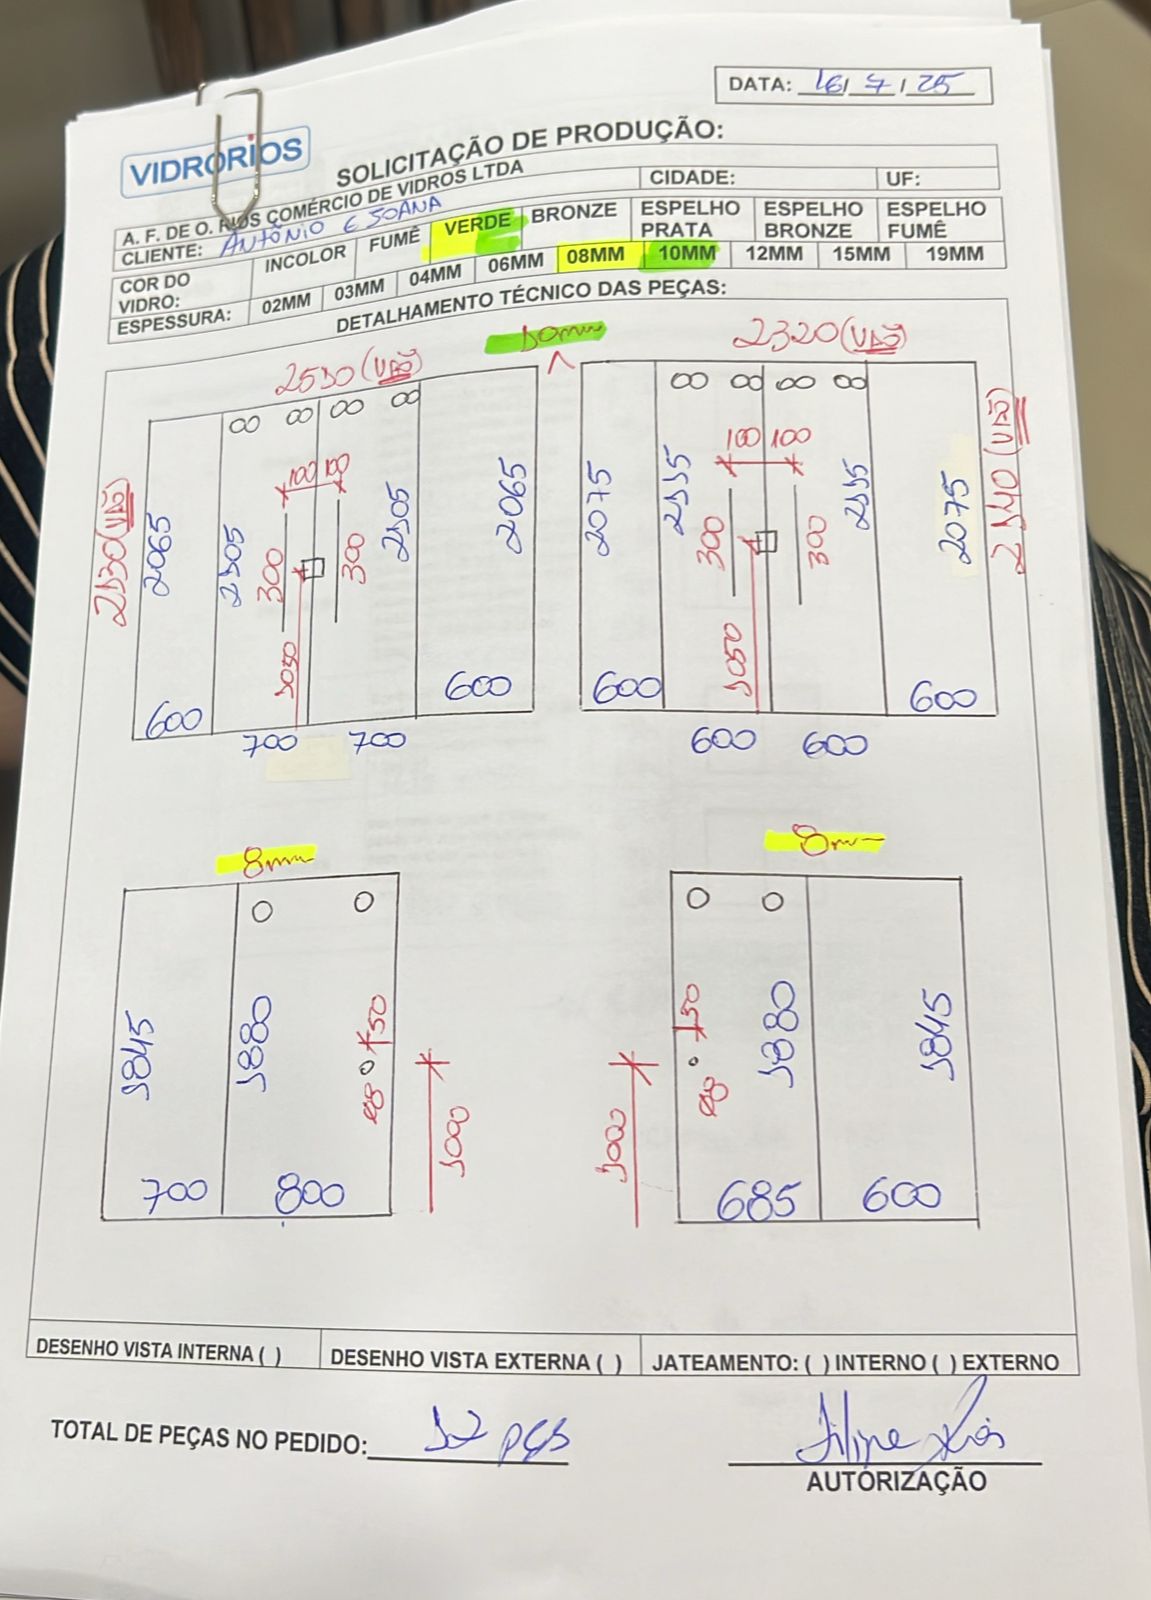 DATA: 16/ 7 / 25
VIDRORIOS
SOLICITAÇÃO DE PRODUÇÃO:
A. F. DE O. RIOS COMÉRCIO DE VIDROS LTDA
CIDADE: UF:
CLIENTE: ANTÔNIO E JOANA
COR DO VIDRO: INCOLOR FUMÊ VERDE BRONZE ESPELHO PRATA ESPELHO BRONZE ESPELHO FUMÊ
ESPESSURA: 02MM 03MM 04MM 06MM 08MM 10MM 12MM 15MM 19MM
DETALHAMENTO TÉCNICO DAS PEÇAS:
10mm
2530 (VÃO)
2130 (VÃO)
2065
2105
300
100 100
300
2105
2065
1050
600
700 700
600
2320 (VÃO)
2140 (VÃO)
2075
2115
300
100 100
300
2115
2075
1050
600
600 600
600
8mm
1845
1880
50
1000
700 800
8mm
50
1880
1845
1000
685 600
DESENHO VISTA INTERNA ( ) DESENHO VISTA EXTERNA ( ) JATEAMENTO: ( ) INTERNO ( ) EXTERNO
TOTAL DE PEÇAS NO PEDIDO: 12 pçs
Filipe Rios
AUTORIZAÇÃO